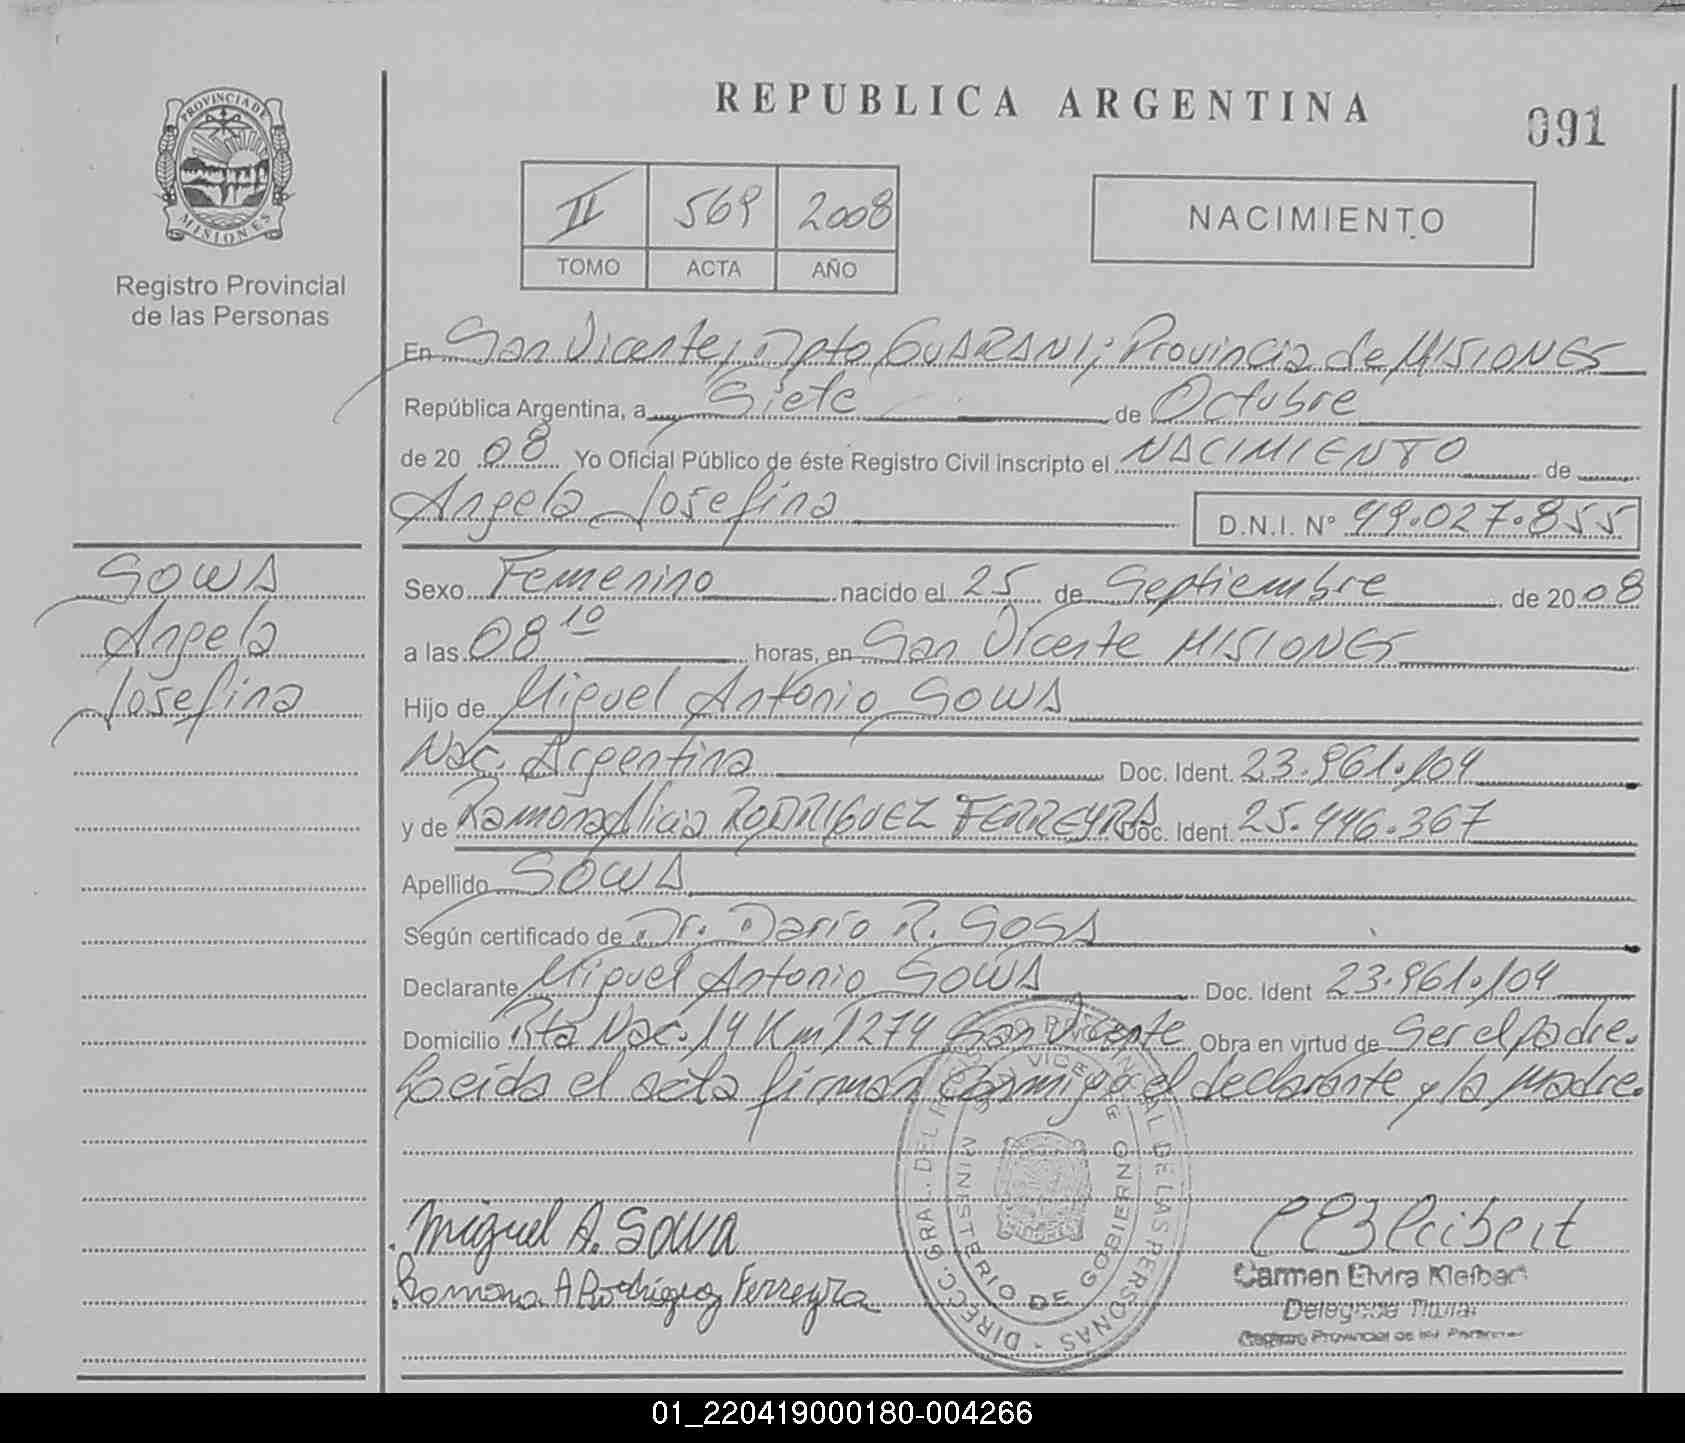 REPUBLICA ARGENTINA
091
PROVINCIA DE
MISIONES
Registro Provincial
de las Personas
II 569 2008
TOMO ACTA AÑO
NACIMIENTO
En San Vicente, Dpto GUARANI; Provincia de MISIONES
República Argentina, a Siete de Octubre
de 20 08 Yo Oficial Público de éste Registro Civil inscripto el NACIMIENTO de
Angela Josefina D.N.I. N° 49.027.855
SOWA
Angela
Josefina
Sexo Femenino nacido el 25 de Septiembre de 20 08
a las 08 10 horas, en San Vicente MISIONES
Hijo de Miguel Antonio SOWA
Nac. Argentina Doc. Ident. 23.961.104
y de Ramona Alicia RODRIGUEZ FERREYRA Doc. Ident. 25.446.367
Apellido SOWA
Según certificado de Dr. Dario R. SOSA
Declarante Miguel Antonio SOWA Doc. Ident 23.961.104
Domicilio Rta Nac. 14 Km 1274 San Vicente Obra en virtud de Ser el padre.
Leida el acta firman conmigo el declarante y la madre.
DIRECC. GRAL. DEL PROVINCIAL DE LAS PERSONAS
MINISTERIO DE GOBIERNO
Miguel A. Sowa
Ramona A Rodriguez Ferreyra
Carmen Elvira
Delegada Titular
Registro Provincial de las Personas
01_220419000180-004266